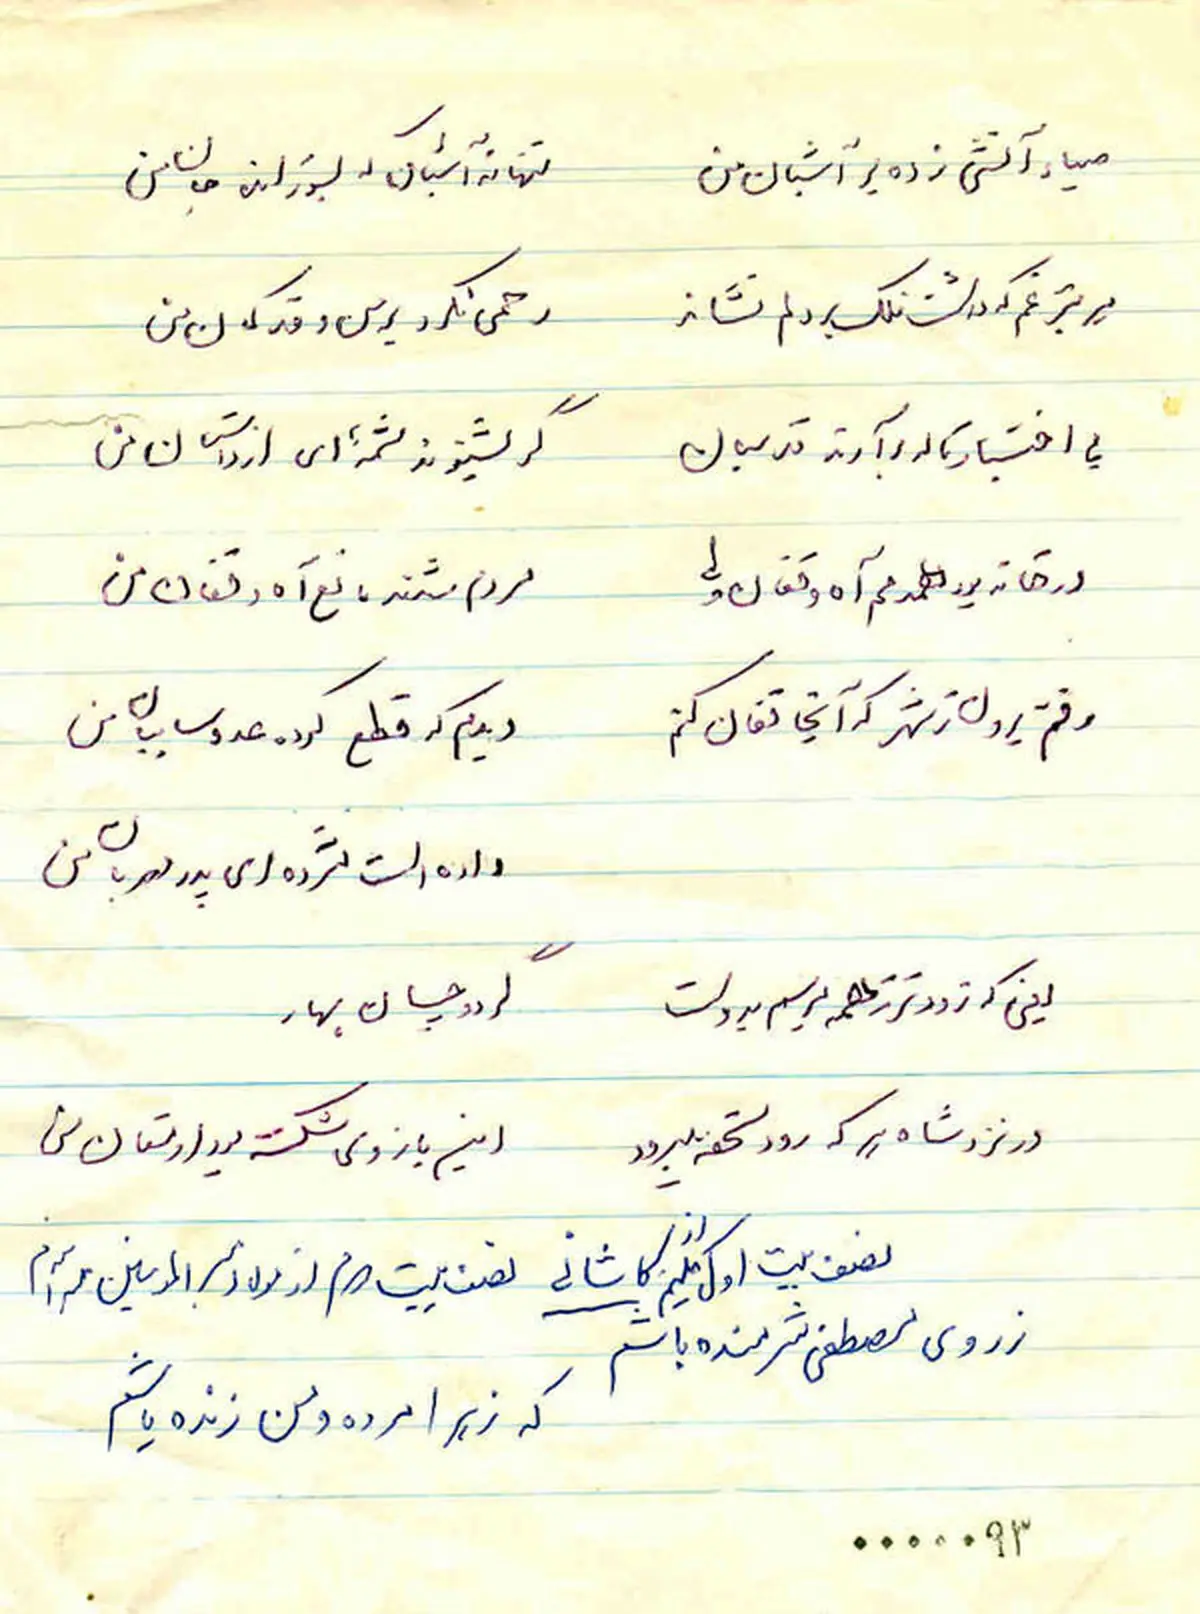 صیاد آتشی زده بر آشیان من تنها نه آشیان که بسوزاند جان من
هر تیر غم که داشت فلک بر دلم نشاند رحمی نکرد بر من و قد کمان من
بی اختیار ناله برآرند قدسیان گر بشنوند شمه ای از داستان من
در خانه بود همدمم آه و فغان ولی مردم شدند مانع آه و فغان من
رفتم برون ز شهر که آنجا فغان کنم دیدم که قطع کرده عدو سایبان من
داده است مژده ای پدر مهربان من
یعنی که زودتر ز همه برسم به دولت گردد چسان بهار
در نزد شاه هر که رود تحفه میبرد این بازوی شکسته بود ارمغان من
نصف بیت اول از کلیم کاشانی نصف بیت دوم از مولا امیرالمومنین
ز روی مصطفی شرمنده باشم
که زهرا مرده و من زنده باشم
۰۰۰۰۰۹۳